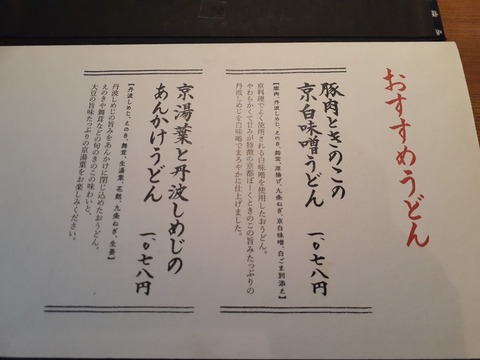 おすすめうどん
豚肉ときのこの
京白味噌うどん 一、〇七八円
京料理でよく使用される白味噌を使用したおうどん。
やわらかくて甘みが特徴の京都ぽーくときのこの旨みたっぷりの
丹波しめじを白味噌でまろやかに仕上げました。
京湯葉と丹波しめじの
あんかけうどん 一、〇七八円
【丹波しめじ、えのき、舞茸、生湯葉、花麩、九条ねぎ、生姜】
丹波しめじの旨みをあんかけに閉じ込めたおうどん。
えのきや舞茸などの旬のきのこの味わいと、
大豆の旨味たっぷりの京湯葉をお楽しみください。